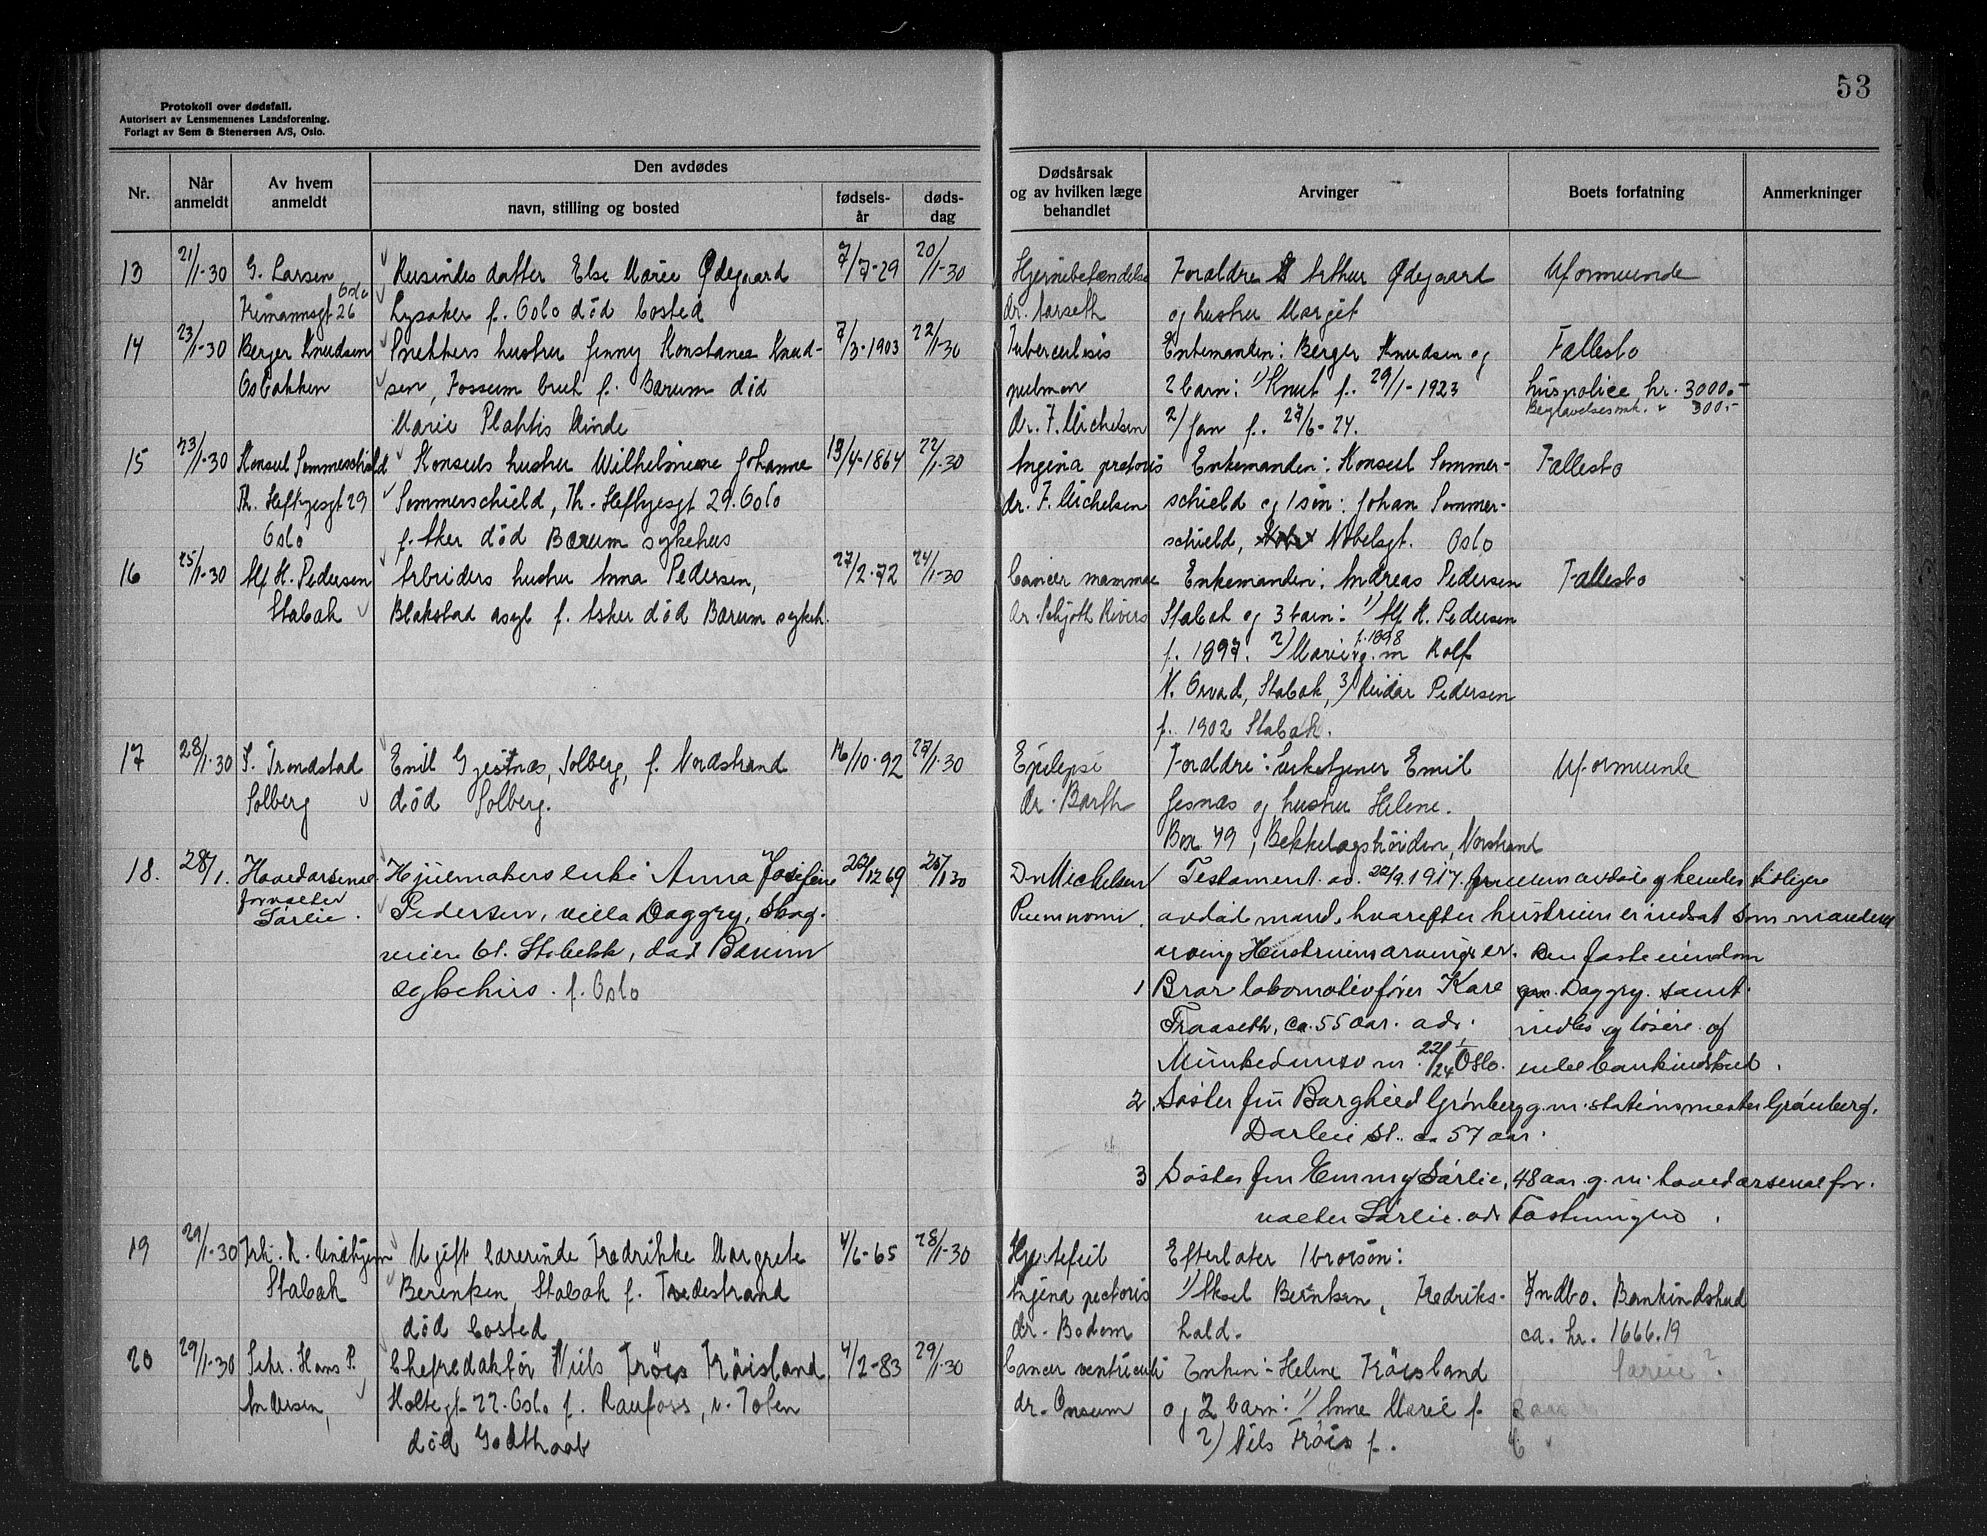 53
Protokoll over dødsfall.
Autorisert av Lensmennenes Landsforening.
Forlagt av Sem & Stenersen A/S, Oslo.
Nr.
Når anmeldt
Av hvem anmeldt
Den avdødes
navn, stilling og bosted
fødsels-
år
døds-
dag
Dødsårsak
og av hvilken læge
behandlet
Arvinger
Boets forfatning
Anmerkninger
13 21/1-30 G. Larsen datter Else Marie Ødegaard 7/7-29 20/1-30 Hjernebetændelse Forædre Arthur Ødegaard Uformuende
Oslo
26 Lysaker f. Oslo død bosted dr. Aarseth og hustru Margit
14 23/1-30 Berger Knudsen Snekkers hustru Jenny Konstance Knud- 7/3-1903 22/1-30 Tuberculosis Enkemanden: Berger Knudsen og Fællesbo
Osbakken sen, Fossum bruk f. Bærum død pulmon 2 barn: 1) Knut f. 29/1-1923 kr. 3000.-
Begravelses 300.-
Marie Plahtes Minde dr. F. Michelsen 2) Jan f. 27/6-24.
15 23/1-30 Konsul Sommerschield Konsuls hustru Wilhelmine Johanne 13/4-1864 22/1-30 Angina pectoris Enkemanden: Konsul Sommer- Fællesbo
Th. Heftyesgt 29 Sommerschield, Th. Heftyesgt 29. Oslo dr. F. Michelsen schield og 1 søn: Johan Sommer-
Oslo f. Aker død Bærum sykehus schield, Nobelsgt. Oslo
16 25/1-30 Alf H. Pedersen Arbeiders hustru Anna Pedersen, 27/2-72 24/1-30 Cancer mammae Enkemanden: Andreas Pedersen Fællesbo
Stabæk Blakstad asyl f. Asker død Bærum sykeh. dr. Schjøth Stabæk og 3 barn: 1) Alf H. Pedersen
f. 1898
f. 1897. 2) Marie g. m Rolf
N. Stabæk, 3) Reidar Pedersen
f. 1902 Stabæk.
17 28/1-30 S. Trondstad Emil Gjestnæs, Solberg, f. Nordstrand 16/10-92 27/1-30 Epilepsi Forædre: Emil Uformuende
Solberg død Solberg. dr. Barth Gesnæs og hustru Helene.
Box 49, Bekkelagshøiden, Norstrand
18. 28/1. Hovedarsenal Hjulmakers enke Anna Josefine 22/12 69 25/1 30 Dr Michelsen Testament av 22/9. 1917. avdøde og hendes tidligere
forvalter
Sørlie. Pedersen, villa Daggry, Skog- avdøde mand, hvorefter hustruen er indsat som mandens
veien 61. Stabekk, død Bærum arving Hustruens arvinger er. Den faste eiendom
sykehus. f. Oslo 1 Bror lokomotivfører Kåre Daggry. samt
Fraaseth, ca. 55 aar. adr. indbo og løsøre og
Munkedamsv nr. 22/24 Oslo. endel bankindskud.
2. Søster fru Borghild Grønberg g. m. stationsmester Grønberg,
Darlie St. ca 57 aar.
3 Søster fru Emmy Sørlie, 48 aar. g. m. hovedarsenalfor.
valter Sørlie. adr
19 29/1-30 Stabæk Ugift lærerinde Fredrikke Margrete 4/6-65 28/1-30 Hjertefeil Efterlater 1 brorsøn:
Berentsen, Stabæk f. Tvedestrand Angina pectoris 1) Aksel Berntsen, Fredriks- Indbo. Bankindskud
død bosted dr. Bodom hald. ca. kr. 1666.19
20 29/1-30 Hans P. Chefredaktør Niels Trøis Krøisland 4/2-83 29/1-30 Cancer ventriculi Enken: Helene Krøisland
Andersen, Holtegt 22. Oslo f. Raufoss, v. Toten dr. Onsum og 2 barn: 1) Anne Marie f.
død Godthaab 2) Nils Trøis f.